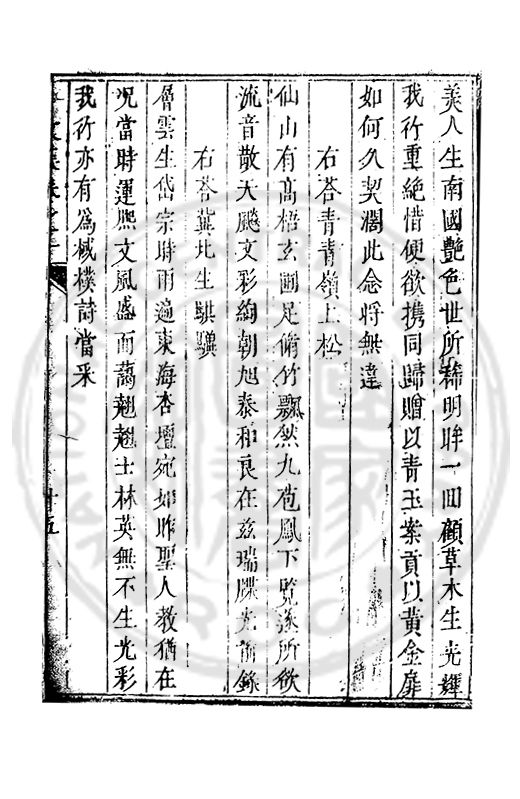 美人生南國艶色世所稀明眸一回顧草木生光輝
我行重絶惜便欲携同歸贈以青玉案貢以黃金扉
如何久契濶此念將無違
右荅青青嶺上松
仙山有高梧玄圃足脩竹飄然九苞鳳下覧遂所欲
流音散大飈文彩絢朝旭泰和良在兹瑞牒光前錄
右荅冀北生騏驥
層雲生岱宗時雨遍東海杏壇宛如昨聖人教猶在
况當時運熙文風盛而藹翹翹士林英無不生光彩
我行亦有爲棫樸詩當采
十五